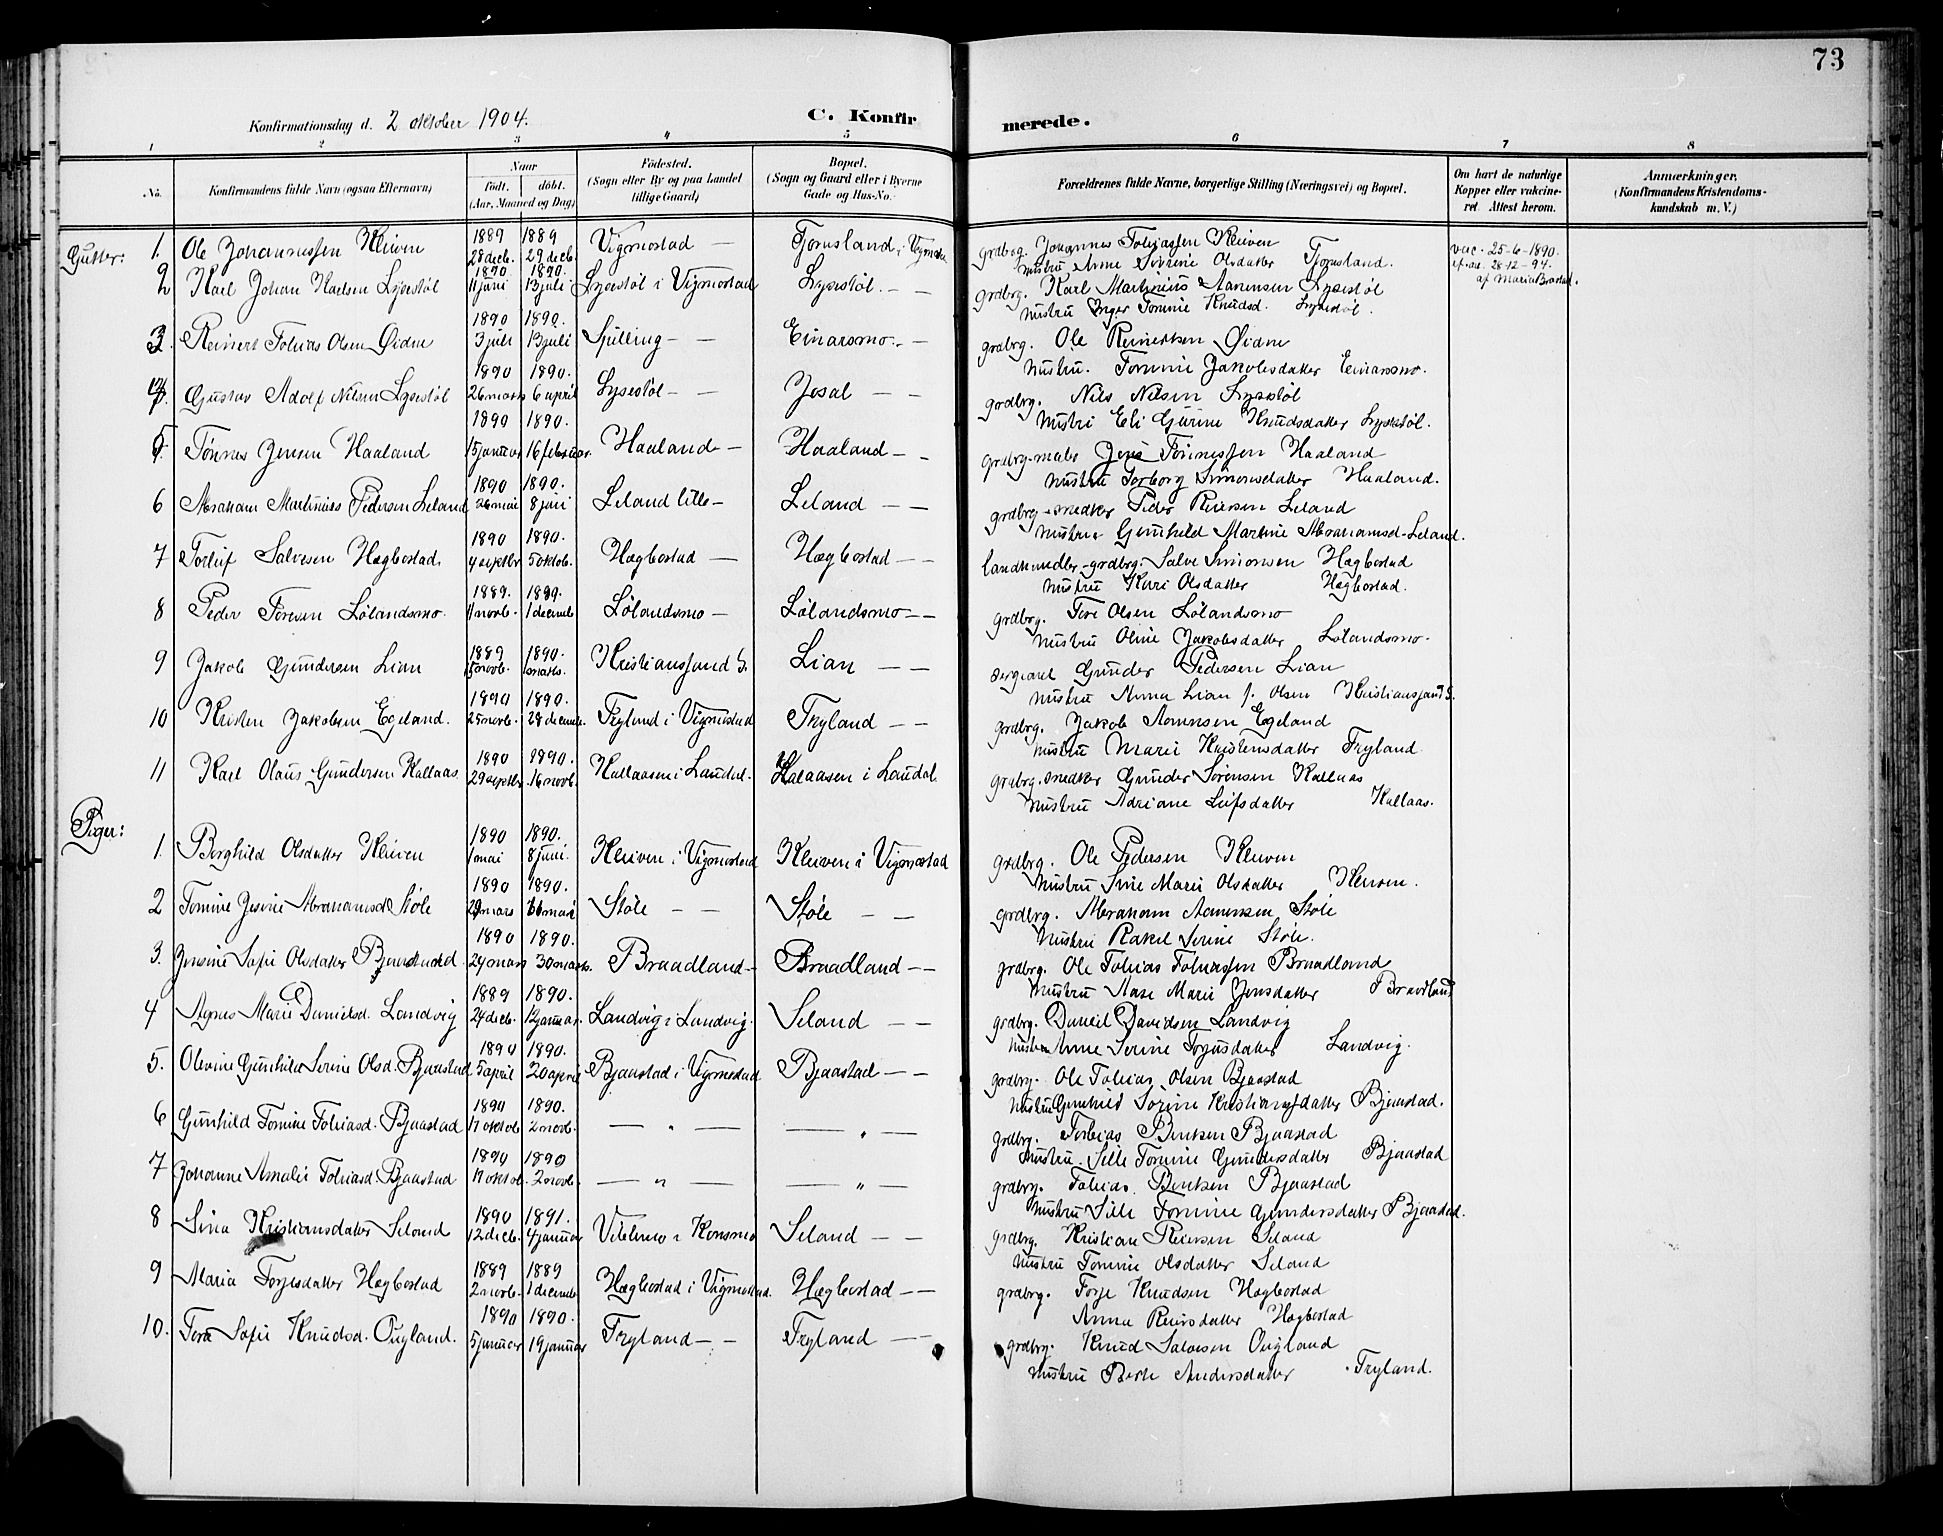 73
Konfirmationsdag d. 2 oktober 1904.
C. Konfirmerede.
1 2 3 4 5 6 7 8
No. Konfirmandens fulde Navn (ogsaa Efternavn) Naar født. døbt. (Aar, Maaned og Dag) Födested. (Sogn eller By og paa Landet tillige Gaard) Bopæl. (Sogn og Gaard eller i Byerne Gade og Hus-No. Forældrenes fulde Navne, borgerlige Stilling (Næringsvei) og Bopæl. Om havt de naturlige Kopper eller vakcineret. Attest herom. Anmærkninger. (Konfirmandens Kristendomskundskab m. V.)
Gutter:
1. Ole Johannessen Kleiven 1889 28 decb. 1889 29 decb. Vigmostad — Tjomsland i Vigmostad grdbrg. Johannes Tobiassen Kleiven vac. 25-6-1890.
hustru Anne Olsdatter Tjomsland. 28-12-94. af Maria
2 Karl Johan Karlsen Lysestøl 1890 11 juni 1890. 13 juli Lysestøl i Vigmostad Lysestøl. — — grdbrg. Karl Martinius Aanensen Lysestøl
hustru Inger Tomine Knudsd. Lysestøl.
3. Reinert Tobias Olsen Øidne 1890 3 juli 1890. 13 juli Spilling — — Einarsmo. — grdbrg. Ole Reinertsen Øidne
hustru. Tomine Jakobsdatter Einarsmo.
4 Gustav Adolf Nilsen Lysestøl 1890 26 mars 1890. 6 april Lysestøl — — Josal — — grdbrg. Nils Nilsen Lysestøl
hustru Eli Gurine Knudsdatter Lysestøl.
5. Tønnes Jensen Haaland 1890 15 januar 1890. 16 februar. Haaland — Haaland — — grdbrg-maler Jens Tønnessen Haaland
hustru Torborg Simonsdatter Haaland.
6 Abraham Martinius Pedersen Leland 1890 26 mai 1890. 8 juni Leland lille — Leland — — grdbrg-snedker Peder Reiersen Leland
hustru Gunhild Martine Abrahamsd. Leland.
7 Torleif Salvesen Hægbostad. 1890 4 septbr 1890. 5 oktob. Hægbostad — Hægbostad — — landhandler-grdbrg. Salve Simonsen Hægbostad
hustru Kari Olsdatter Hægbostad.
8 Peder Toresen Lølandsmo. 1889. 11 novb. 1889. 1 decemb Lølandsmo — Lølandsmo — — grdbrg. Tore Olsen Lølandsmo
hustru Oline Jakobsdatter Lølandsmo.
9 Jakob Gundersen Lian 1889 15 novb. 1890. mars. Kristianssand S. Lian — — sergeant Gunder Pedersen Lian
hustru Anna Lian f. Olsen Kristianssand S.
10 Kristen Jakobsen Egeland. 1890 25 novb. 1890. 28 decemb. Tryland i Vigmostad Tryland — — grdbrg. Jakob Aanensen Egeland
hustru Marie Kristensdatter Tryland.
11 Karl Olaus Gundersen Kallaas. 1890 29 septbr. 1890. 16 novb. Kallaasen i Laudal. Kalaasen i Laudal. grdbrg. snedker Gunder Sørensen Kallaas
hustru Adriane Leifsdatter Kallaas.
Piger:
1. Borghild Olsdatter Kleiven 1890 1 mai 1890. 8 juni. Kleiven i Vigmostad Kleiven i Vigmostad grdbrg. Ole Pedersen Kleiven
hustru Sine Marie Olsdatter Kleiven.
2 Tomine Jesine Abrahamsd. Støle 1890 29 mars 1890. mai Støle — — Støle — — grdbrg. Abraham Aanensen Støle
hustru Rakel Serine Støle.
3. Jensine Sofie Olsdatter Braadland 1890 24 mars 1890. 30 mars. Braadland — Braadland — — grdbrg. Ole Tobias Tobiassen Braadland
hustru Aase Marie Jensdatter Braadland
4 Agnes Marie Danielsd. Landvig 1889 24 decb. 1890. 12 januar. Landvig i Landvig. Leland — — grdbrg. Daniel Davidsen Landvig
hustru Anne Serine Torjusdatter Landvig.
5. Olevine Gunhild Serine Olsd. Bjaastad 1890 5 april 1890. 20 april Bjaastad i Vigmostad Bjaastad — — grdbrg. Ole Tobias Olsen Bjaastad
hustru Gunhild Sørine Kristiansdatter Bjaastad.
6 Gunhild Tomine Tobiasd. Bjaastad 1890 17 oktob 1890. 2 novb. — " — — " — grdbrg. Tobias Bentsen Bjaastad
hustru. Sille Tomine Gundersdatter Bjaastad
7 Johanne Amalie Tobiasd Bjaastad 1890 17 oktob. 1890 2 novb. — " — — " — grdbrg. Tobias Bentsen Bjaastad
hustru Sille Tomine Gundersdatter Bjaastad.
8 Sina Kristiansdatter Leland 1890 12 decb. 1891. 4 januar Viblemo i Konsmo Leland — — grdbrg. Kristian Reiersen Leland
hustru Tomine Olsdatter Leland
9 Maria Torjesdatter Hægbostad 1889 2 novb. 1889 1 decemb Hægbostad i Vigmostad. Hægbostad — — grdbrg. Torje Knudsen Hægbostad
Anna Reiersdatter Hægbostad
10. Tora Sofie Knudsd. Øugland. 1890 5 januar 1890. 19 januar Tryland — — Tryland — — grdbrg. Knud Salvesen Øugland
hustru Berte Andersdatter Tryland.